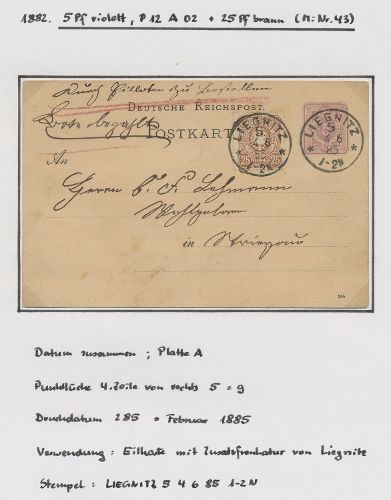 1882. 5Pf violett, P 12 A 02 + 25Pf braun (Mi: Nr. 43)
Durch Eilboten zu bestellen
DEUTSCHE REICHSPOST.
Bote bezahlt
POSTKARTE
LIEGNITZ
5
6
85
1-2N
LIEGNITZ
6
1-2N
25 25
An
Herrn C. F. Lehmann
Wohlgeboren
in Striegau
285
Datum zusammen ; Platte A
Punktlücke 4. Zeile von rechts 5 = 9
Druckdatum 285 = Februar 1885
Verwendung : Eilkarte mit Zusatzfrankatur von Liegnitz
Stempel : LIEGNITZ 5 4 6 85 1-2N